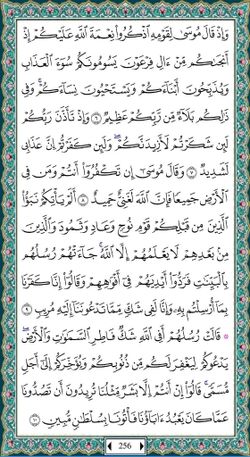 وَإِذْ قَالَ مُوسَىٰ لِقَوْمِهِ ٱذْكُرُوا۟ نِعْمَةَ ٱللَّهِ عَلَيْكُمْ إِذْ
أَنجَىٰكُم مِّنْ ءَالِ فِرْعَوْنَ يَسُومُونَكُمْ سُوٓءَ ٱلْعَذَابِ
وَيُذَبِّحُونَ أَبْنَآءَكُمْ وَيَسْتَحْيُونَ نِسَآءَكُمْ ۚ وَفِى
ذَٰلِكُم بَلَآءٌ مِّن رَّبِّكُمْ عَظِيمٌ ٦ وَإِذْ تَأَذَّنَ رَبُّكُمْ
لَئِن شَكَرْتُمْ لَأَزِيدَنَّكُمْ ۖ وَلَئِن كَفَرْتُمْ إِنَّ عَذَابِى
لَشَدِيدٌ ٧ وَقَالَ مُوسَىٰٓ إِن تَكْفُرُوٓا۟ أَنتُمْ وَمَن فِى
ٱلْأَرْضِ جَمِيعًا فَإِنَّ ٱللَّهَ لَغَنِىٌّ حَمِيدٌ ٨ أَلَمْ يَأْتِكُمْ نَبَؤُا۟
ٱلَّذِينَ مِن قَبْلِكُمْ قَوْمِ نُوحٍ وَعَادٍ وَثَمُودَ ۛ وَٱلَّذِينَ
مِنۢ بَعْدِهِمْ ۛ لَا يَعْلَمُهُمْ إِلَّا ٱللَّهُ ۚ جَآءَتْهُمْ رُسُلُهُم
بِٱلْبَيِّنَٰتِ فَرَدُّوٓا۟ أَيْدِيَهُمْ فِىٓ أَفْوَٰهِهِمْ وَقَالُوٓا۟ إِنَّا كَفَرْنَا
بِمَآ أُرْسِلْتُم بِهِۦ وَإِنَّا لَفِى شَكٍّ مِّمَّا تَدْعُونَنَآ إِلَيْهِ مُرِيبٍ ٩
۞ قَالَتْ رُسُلُهُمْ أَفِى ٱللَّهِ شَكٌّ فَاطِرِ ٱلسَّمَٰوَٰتِ وَٱلْأَرْضِ ۖ
يَدْعُوكُمْ لِيَغْفِرَ لَكُم مِّن ذُنُوبِكُمْ وَيُؤَخِّرَكُمْ إِلَىٰٓ أَجَلٍ
مُّسَمًّى ۚ قَالُوٓا۟ إِنْ أَنتُمْ إِلَّا بَشَرٌ مِّثْلُنَا تُرِيدُونَ أَن تَصُدُّونَا
عَمَّا كَانَ يَعْبُدُ ءَابَآؤُنَا فَأْتُونَا بِسُلْطَٰنٍ مُّبِينٍ ١٠
256